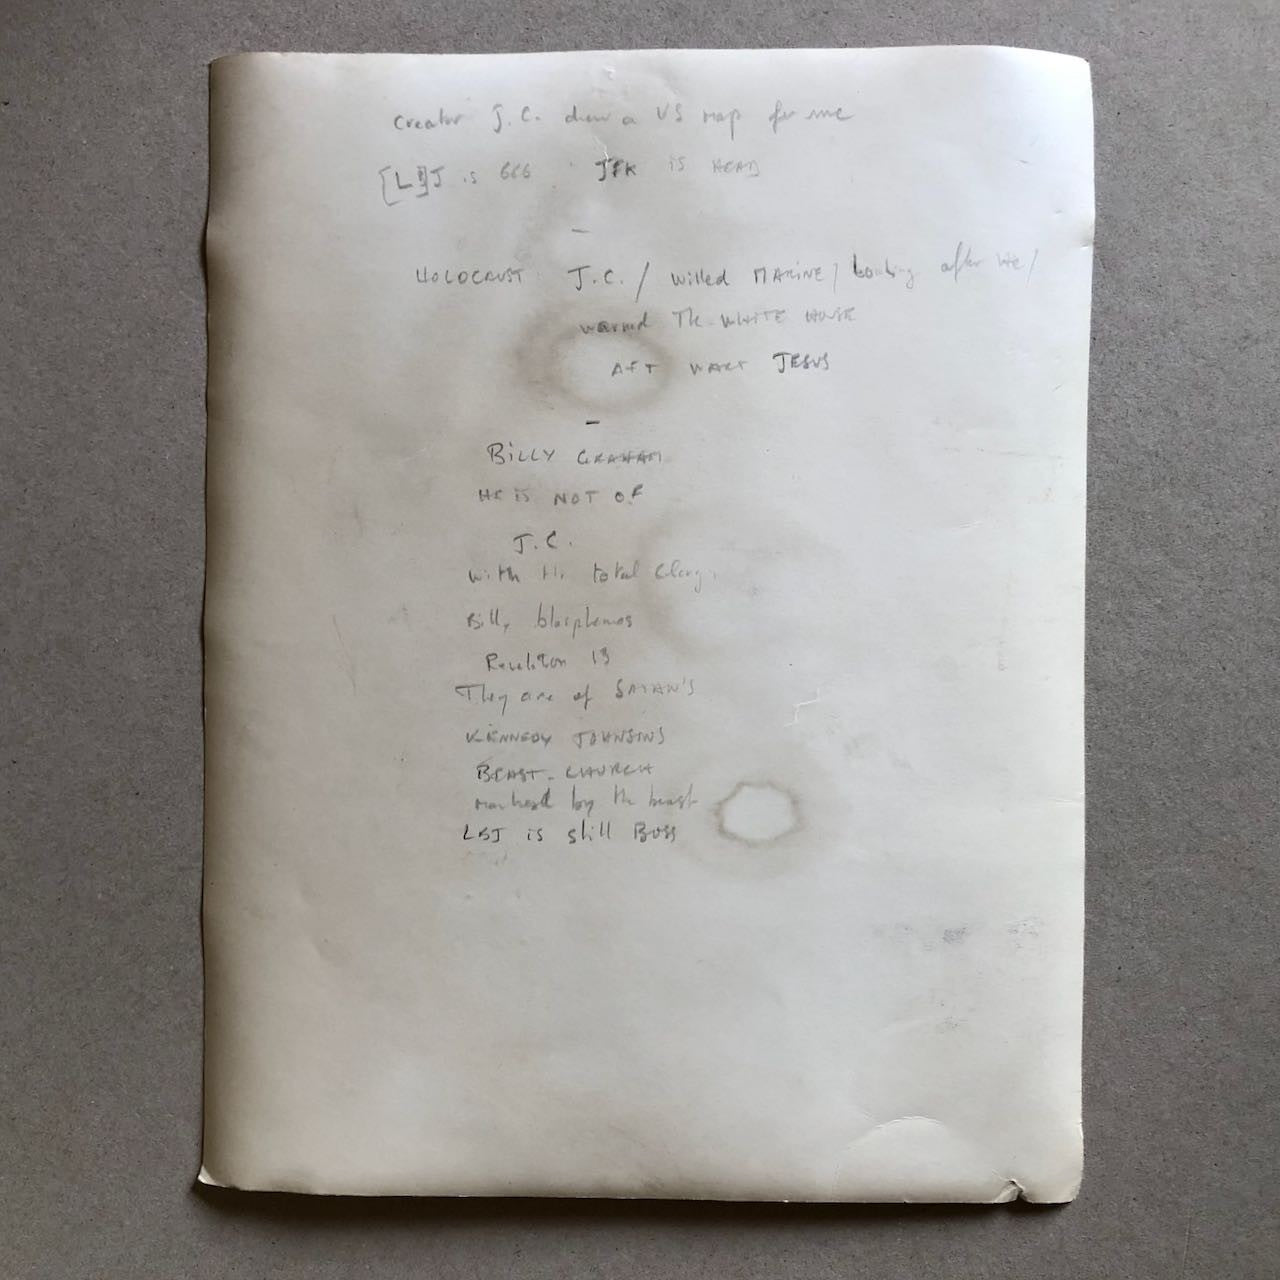 Creator J.C. drew a US map for me
[LBJ is 666 JFK is HEAD
–
HOLOCAUST J.C. / willed MARINE / after we /
warned The WHITE HOUSE
AFT WART JESUS
–
BILLY GRAHAM
HE IS NOT OF
J.C.
with the total Clergy
Billy blasphemes
Revelation 13
They are of SATAN'S
KENNEDY JOHNSONS
BEAST-CHURCH
marked by the beast
LBJ is still Boss